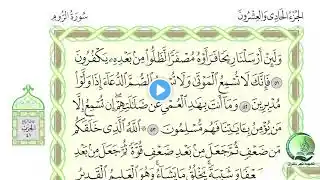 الجزء الحادي والعشرون
سورة الروم
وَلَئِنْ أَرْسَلْنَا رِيحًا فَرَأَوْهُ مُصْفَرًّا لَّظَلُّوا۟ مِنۢ بَعْدِهِۦ يَكْفُرُونَ
۝٥١ فَإِنَّكَ لَا تُسْمِعُ ٱلْمَوْتَىٰ وَلَا تُسْمِعُ ٱلصُّمَّ ٱلدُّعَآءَ إِذَا وَلَّوْا۟
مُدْبِرِينَ ۝٥٢ وَمَآ أَنتَ بِهَٰدِ ٱلْعُمْىِ عَن ضَلَٰلَتِهِمْ إِن تُسْمِعُ إِلَّا
مَن يُؤْمِنُ بِـَٔايَٰتِنَا فَهُم مُّسْلِمُونَ ۝٥٣ ٱللَّهُ ٱلَّذِى خَلَقَكُم
مِّن ضَعْفٍ ثُمَّ جَعَلَ مِنۢ بَعْدِ ضَعْفٍ قُوَّةً ثُمَّ جَعَلَ مِنۢ بَعْدِ
قُوَّةٍ ضَعْفًا وَشَيْبَةً يَخْلُقُ مَا يَشَآءُ وَهُوَ ٱلْعَلِيمُ ٱلْقَدِيرُ
الحزب
٤١